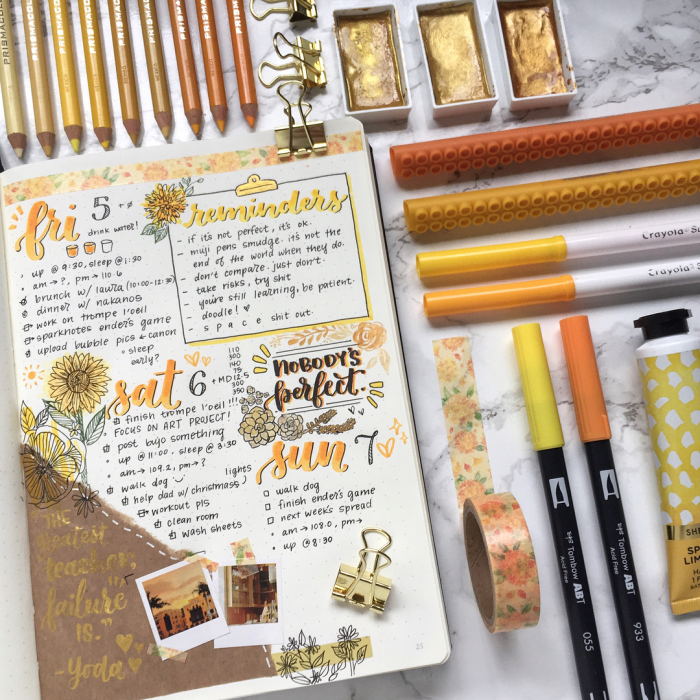 PRISMACOLOR
PRISMACOLOR
PRISMACOLOR
PRISMACOLOR
PRISMACOLOR
PRISMACOLOR
PRISMACOLOR
fri 5
drink water!
• up @ 9:30, sleep @ 1:30
brunch w/ laura (10:00-12:30)
dinner w/ nakanos
work on trompe l'oeil
sparknotes ender's game
upload bubble pics & canon
• sleep
early?
reminders
- if it's not perfect, it's ok.
- muji pens smudge. it's not the
end of the world when they do.
- don't compare. just don't.
- take risks, try shit
- you're still learning, be patient.
- doodle! ♥
- s p a c e shit out.
sat 6
110
300
140
75
300
350
finish trompe l'oeil!!!
FOCUS ON ART PROJECT!
post bujo something
• up @ 11:00, sleep @ 3:30
• am → 109.2, pm → ?
walk dog
lights
help dad w/ christmas
workout p15
clean room
wash sheets
NOBODY'S
perfect.
sun 7
walk dog
finish ender's game
next weeks spread
• am → 108.0, pm →
• up @ 8:30
"THE
greatest
teacher,
failure
is."
-Yoda
23
Crayola
Crayola
Tombow ABT
Acid Free
055
Tombow ABT
Acid Free
933